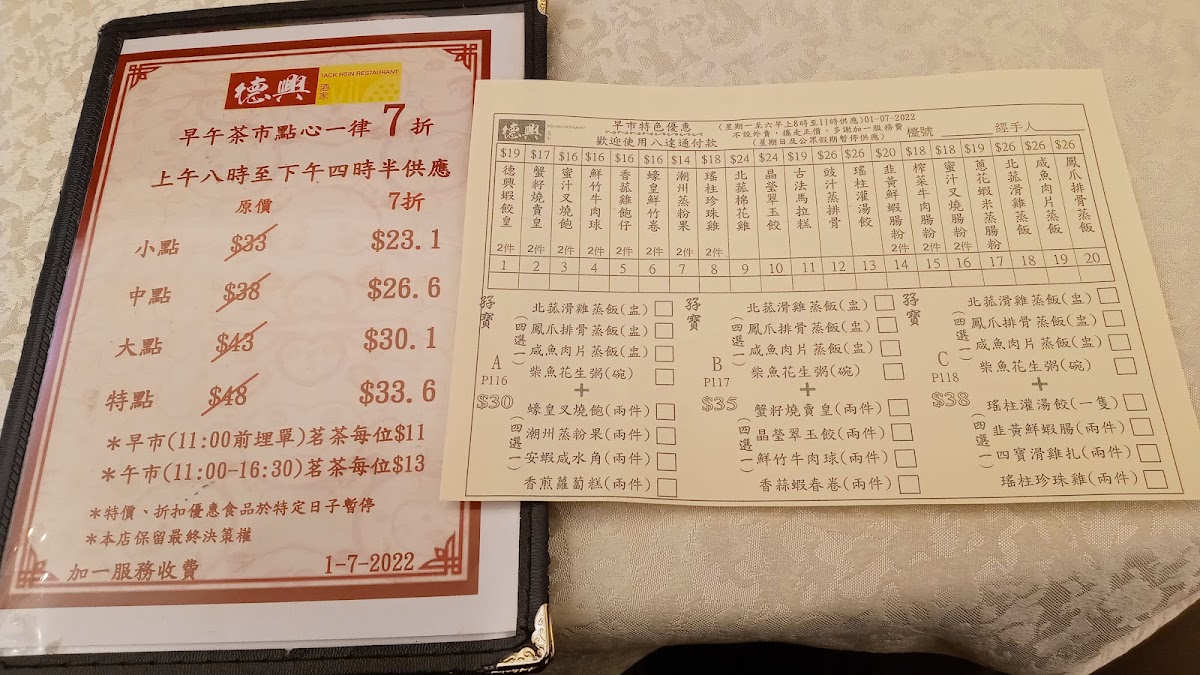 德興
酒家
TACK HSIN RESTAURANT
早午茶市點心一律7折
上午八時至下午四時半供應
原價 7折
小點 $33 $23.1
中點 $38 $26.6
大點 $43 $30.1
特點 $48 $33.6
*早市(11:00前埋單)茗茶每位$11
*午市(11:00-16:30)茗茶每位$13
*特價、折扣優惠食品於特定日子暫停
*本店保留最終決策權
加一服務收費 1-7-2022
德興
早市特色優惠
歡迎使用八達通付款
(星期一至六早上8時至11時供應)01-07-2022
不設外賣，攜走正價，多謝加一服務費
(星期日及公眾假期暫停供應)
檯號 經手人
$19 德興蝦餃皇 2件 1
$17 蟹籽燒賣皇 2件 2
$16 蜜汁叉燒飽 2件 3
$16 鮮竹牛肉球 2件 4
$16 香菇雞飽仔 2件 5
$16 蠔皇鮮竹卷 2件 6
$14 潮州蒸粉果 2件 7
$18 瑤柱珍珠雞 2件 8
$24 北菇棉花雞 9
$24 晶瑩翠玉餃 10
$19 古法馬拉糕 11
$26 豉汁蒸排骨 12
$26 瑤柱灌湯餃 13
$20 韭黃鮮蝦腸粉 2件 14
$18 榨菜牛肉腸粉 2件 15
$18 蜜汁叉燒腸粉 2件 16
$19 蔥花蝦米蒸腸粉 17
$26 北菇滑雞蒸飯 18
$26 咸魚肉片蒸飯 19
$26 鳳爪排骨蒸飯 20
孖寶
A
P116
$30
(四選一)
北菇滑雞蒸飯(盅)
鳳爪排骨蒸飯(盅)
咸魚肉片蒸飯(盅)
柴魚花生粥(碗)
+
(四選一)
蠔皇叉燒飽(兩件)
潮州蒸粉果(兩件)
安蝦咸水角(兩件)
香煎蘿蔔糕(兩件)
孖寶
B
P117
$35
(四選一)
北菇滑雞蒸飯(盅)
鳳爪排骨蒸飯(盅)
咸魚肉片蒸飯(盅)
柴魚花生粥(碗)
+
(四選一)
蟹籽燒賣皇(兩件)
晶瑩翠玉餃(兩件)
鮮竹牛肉球(兩件)
香蒜蝦春卷(兩件)
孖寶
C
P118
$38
(四選一)
北菇滑雞蒸飯(盅)
鳳爪排骨蒸飯(盅)
咸魚肉片蒸飯(盅)
柴魚花生粥(碗)
+
(四選一)
瑤柱灌湯餃(一隻)
韭黃鮮蝦腸(兩件)
四寶滑雞扎(兩件)
瑤柱珍珠雞(兩件)